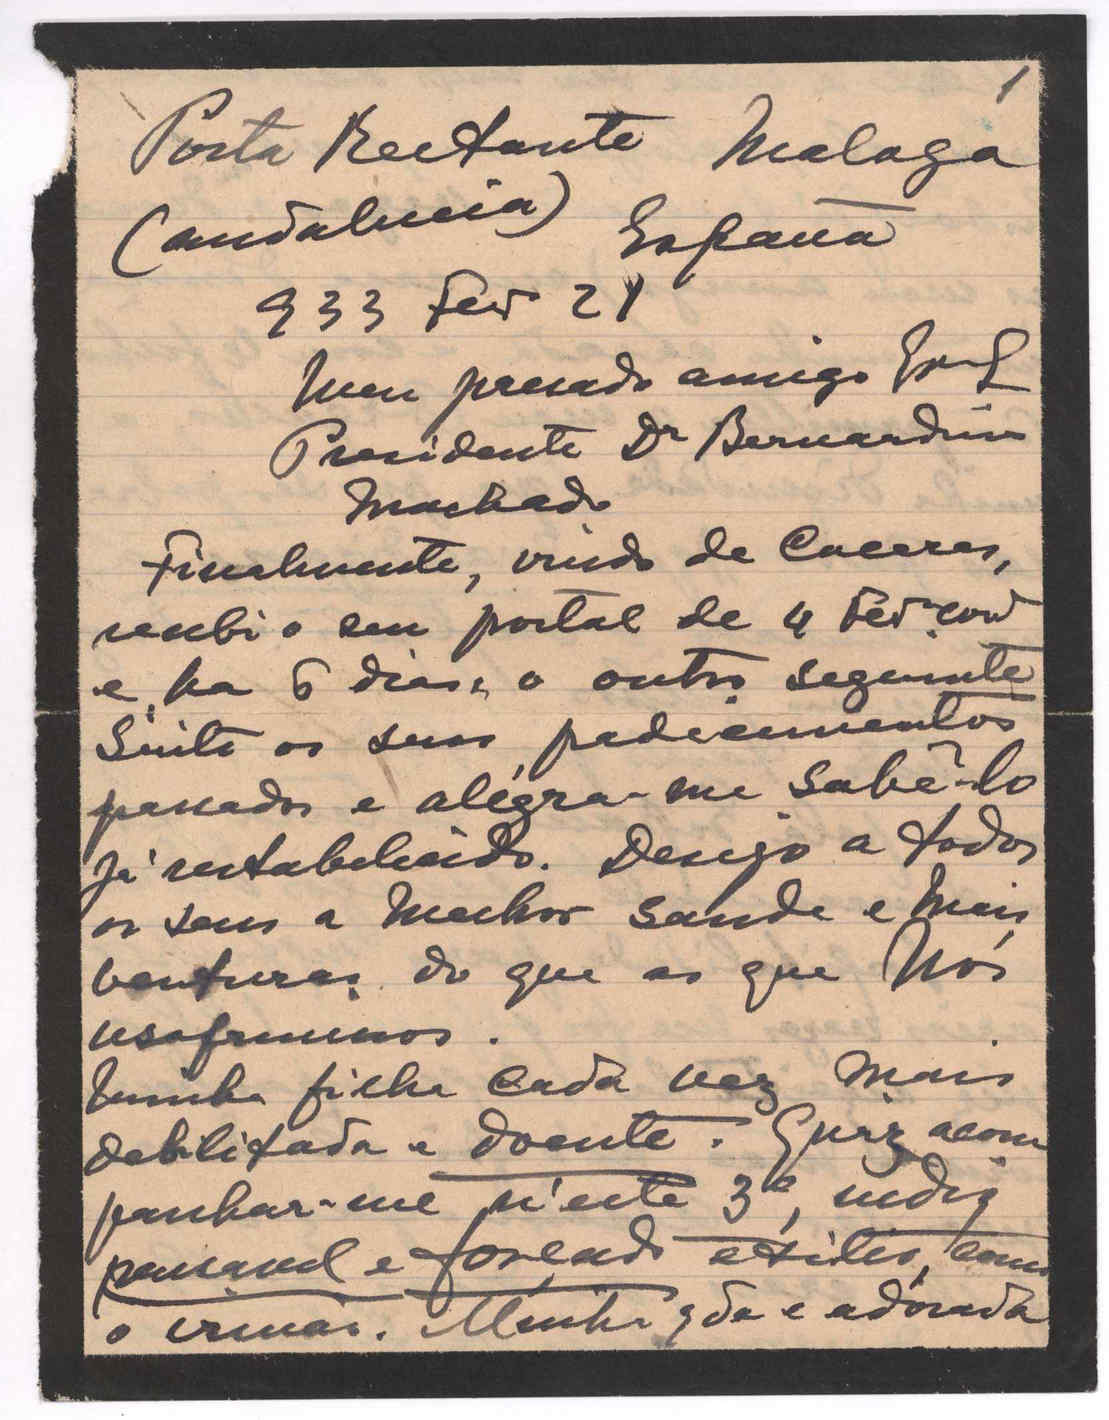 1
Posta Restante Malaga
(Andalucia) España
933 Fev 21
Meu presado amigo
Presidente Dr Bernardino
Machado
Finalmente, vindo de Caceres,
recebi o seu postal de 4 Fev cort
e, ha 6 dias, o outro seguinte
Sinto os seus padecimentos
passados e alégra-me sabê-lo
já restabelecido. Desejo a todos
os seus a Melhor Saude e Mais
venturas do que as que Nós
usofruimos.
Minha filha cada vez Mais
debilitada e doente. Quiz acom
panhar-me n'este 3º, indis
pensavel e forçado exilio, como
o irmão. Minha qda e adorada